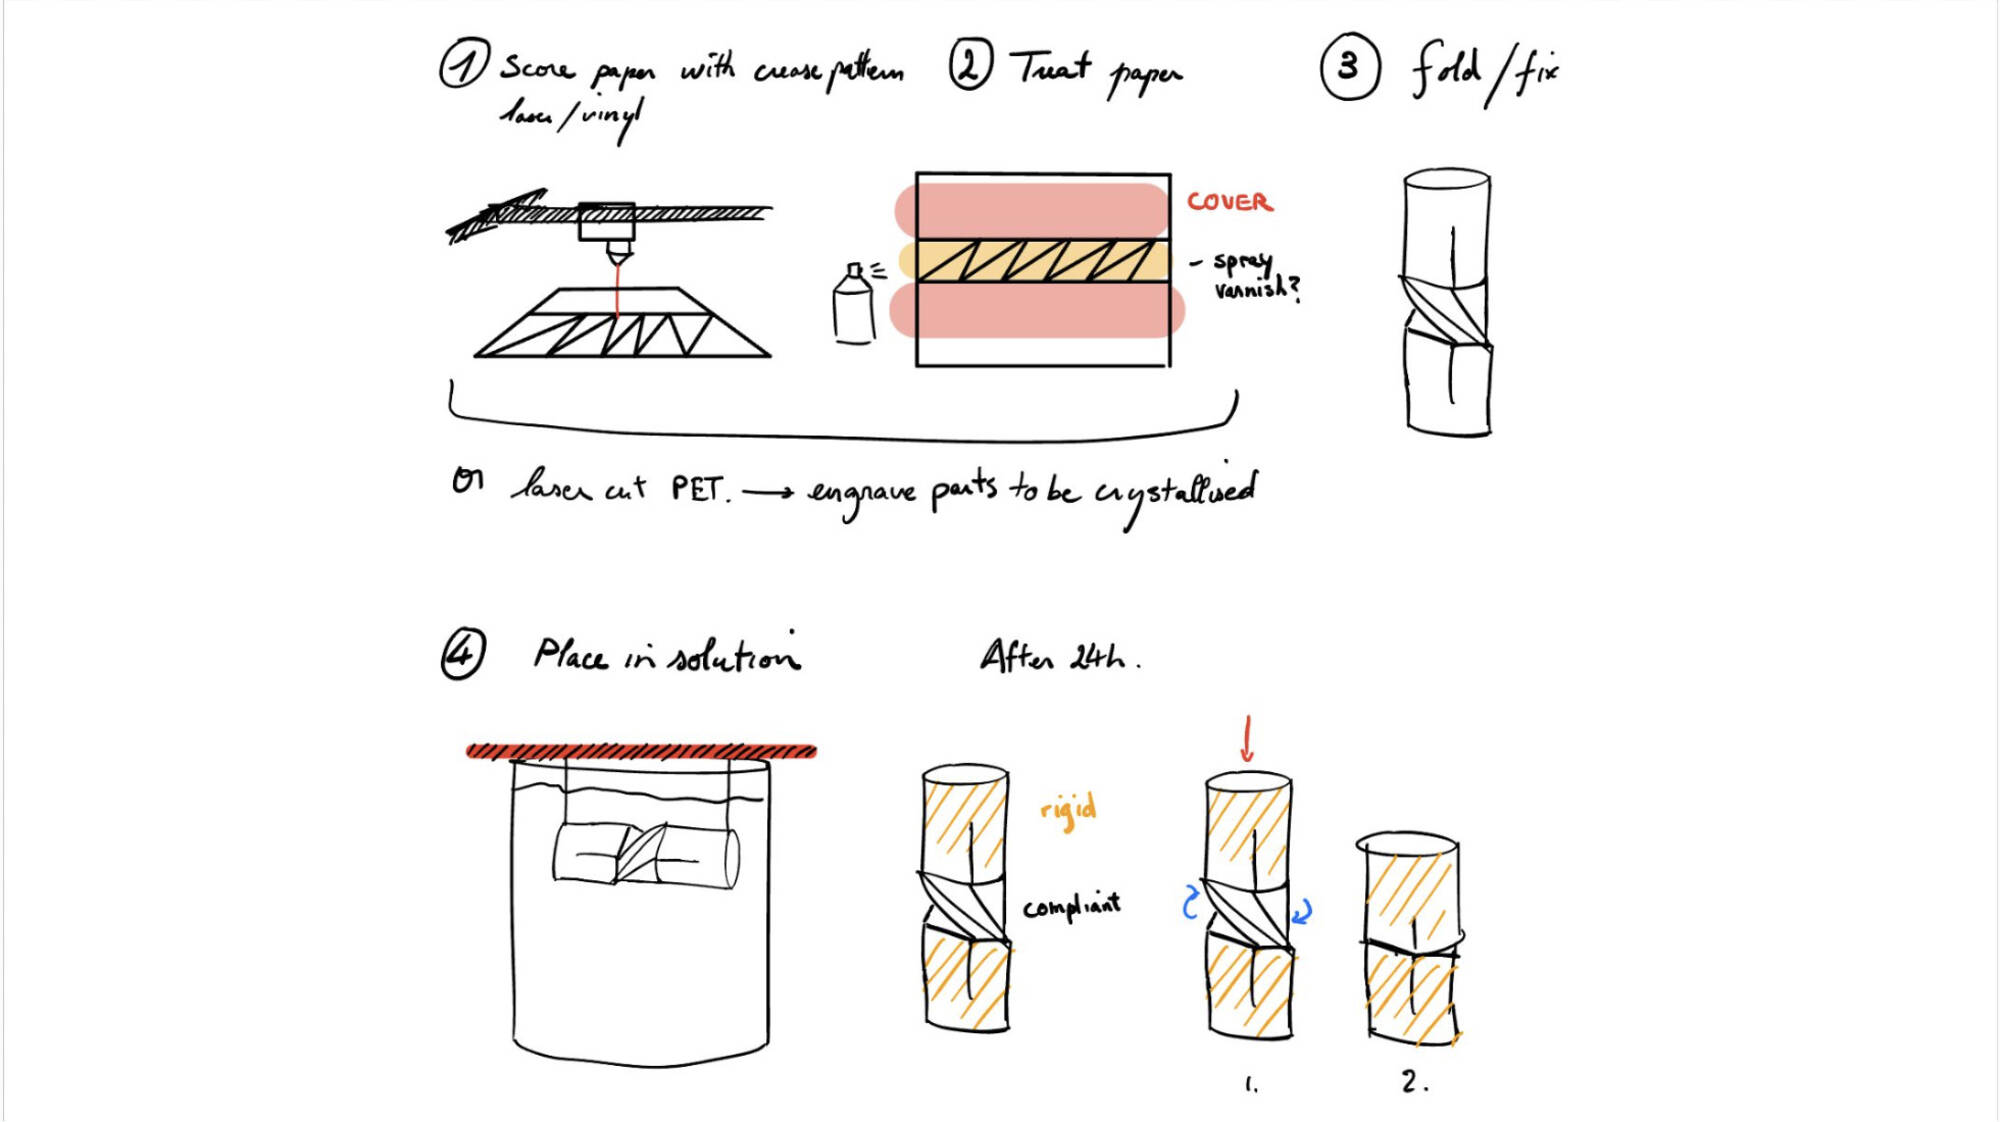 1 Score paper with crease pattern
laser/vinyl
2 Treat paper
3 fold/fix
COVER
- spray
varnish?
or laser cut PET. → engrave parts to be crystallised
4 Place in solution
After 24h.
rigid
compliant
1.
2.